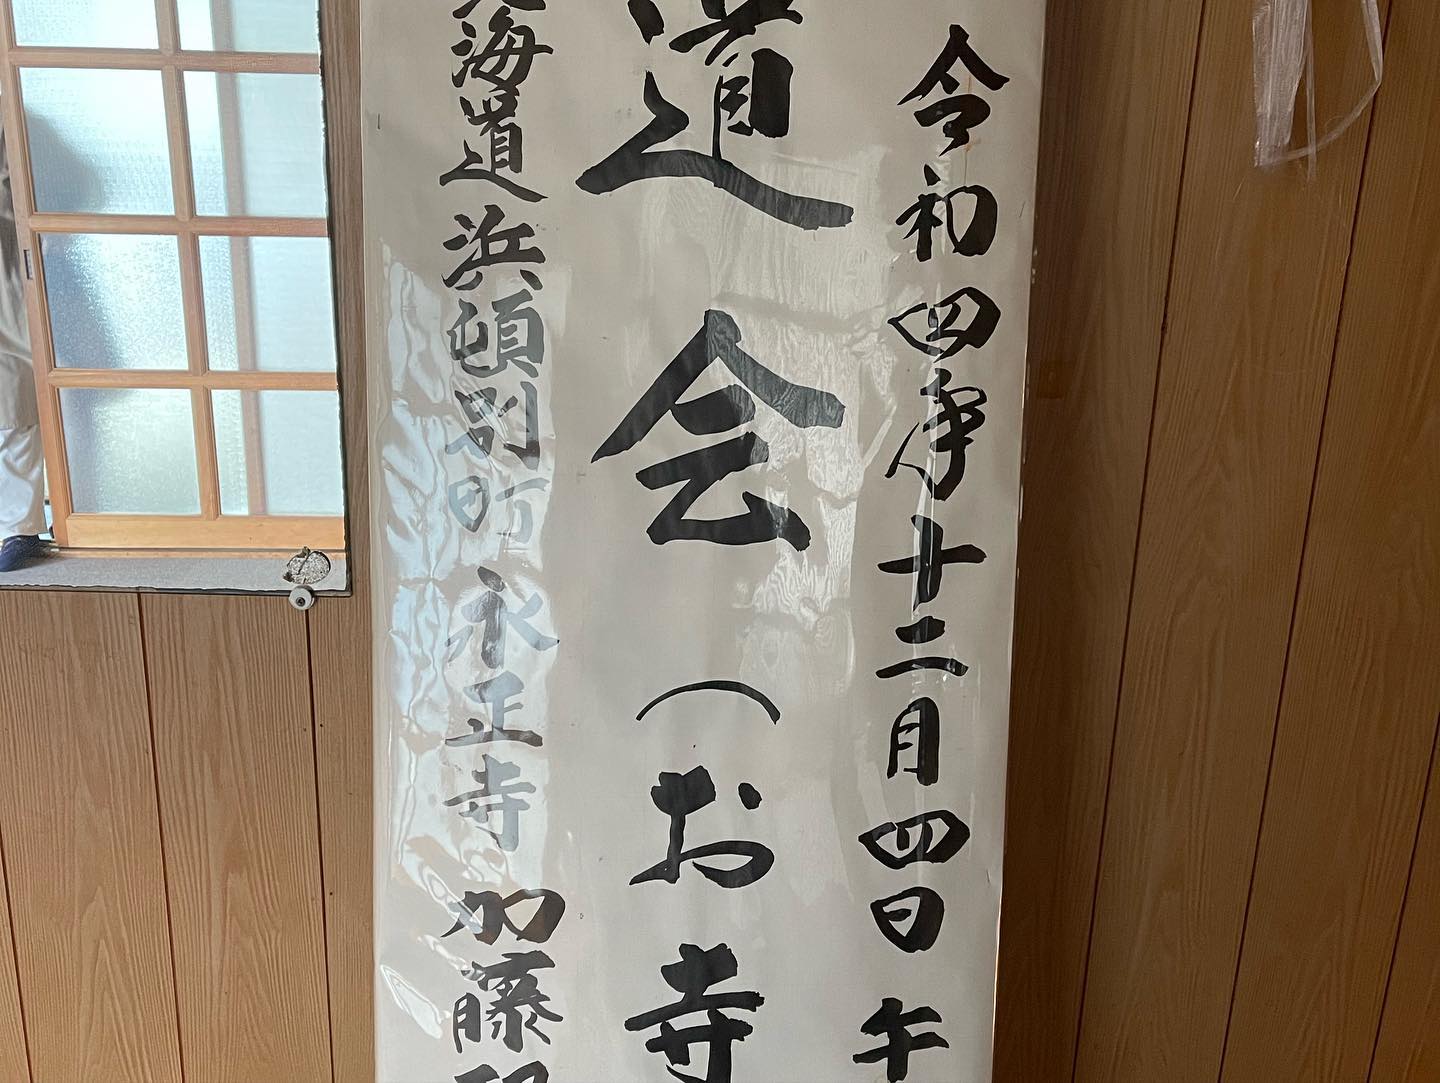 令和四年十二月四日 午
道会（お寺
海道浜頓別町 永正寺 加藤